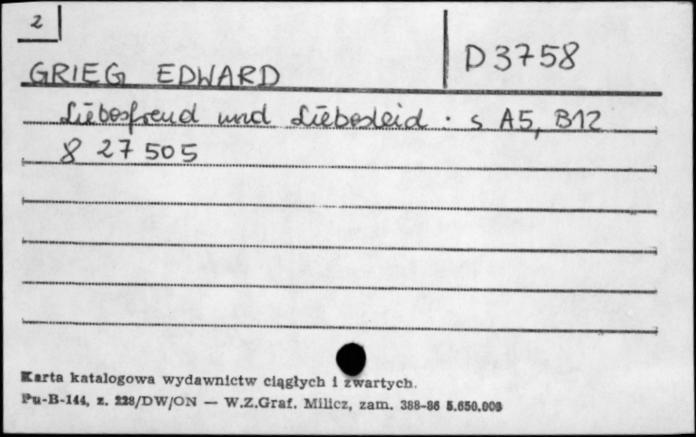 2
GRIEG EDWARD
D 3758
Liebesfreud und Liebesleid . s A5, B12
8 27 505
Karta katalogowa wydawnictw ciągłych i zwartych.
Pu-B-144, z. 228/DW/ON — W.Z.Graf. Milicz, zam. 388-86 5.650.000